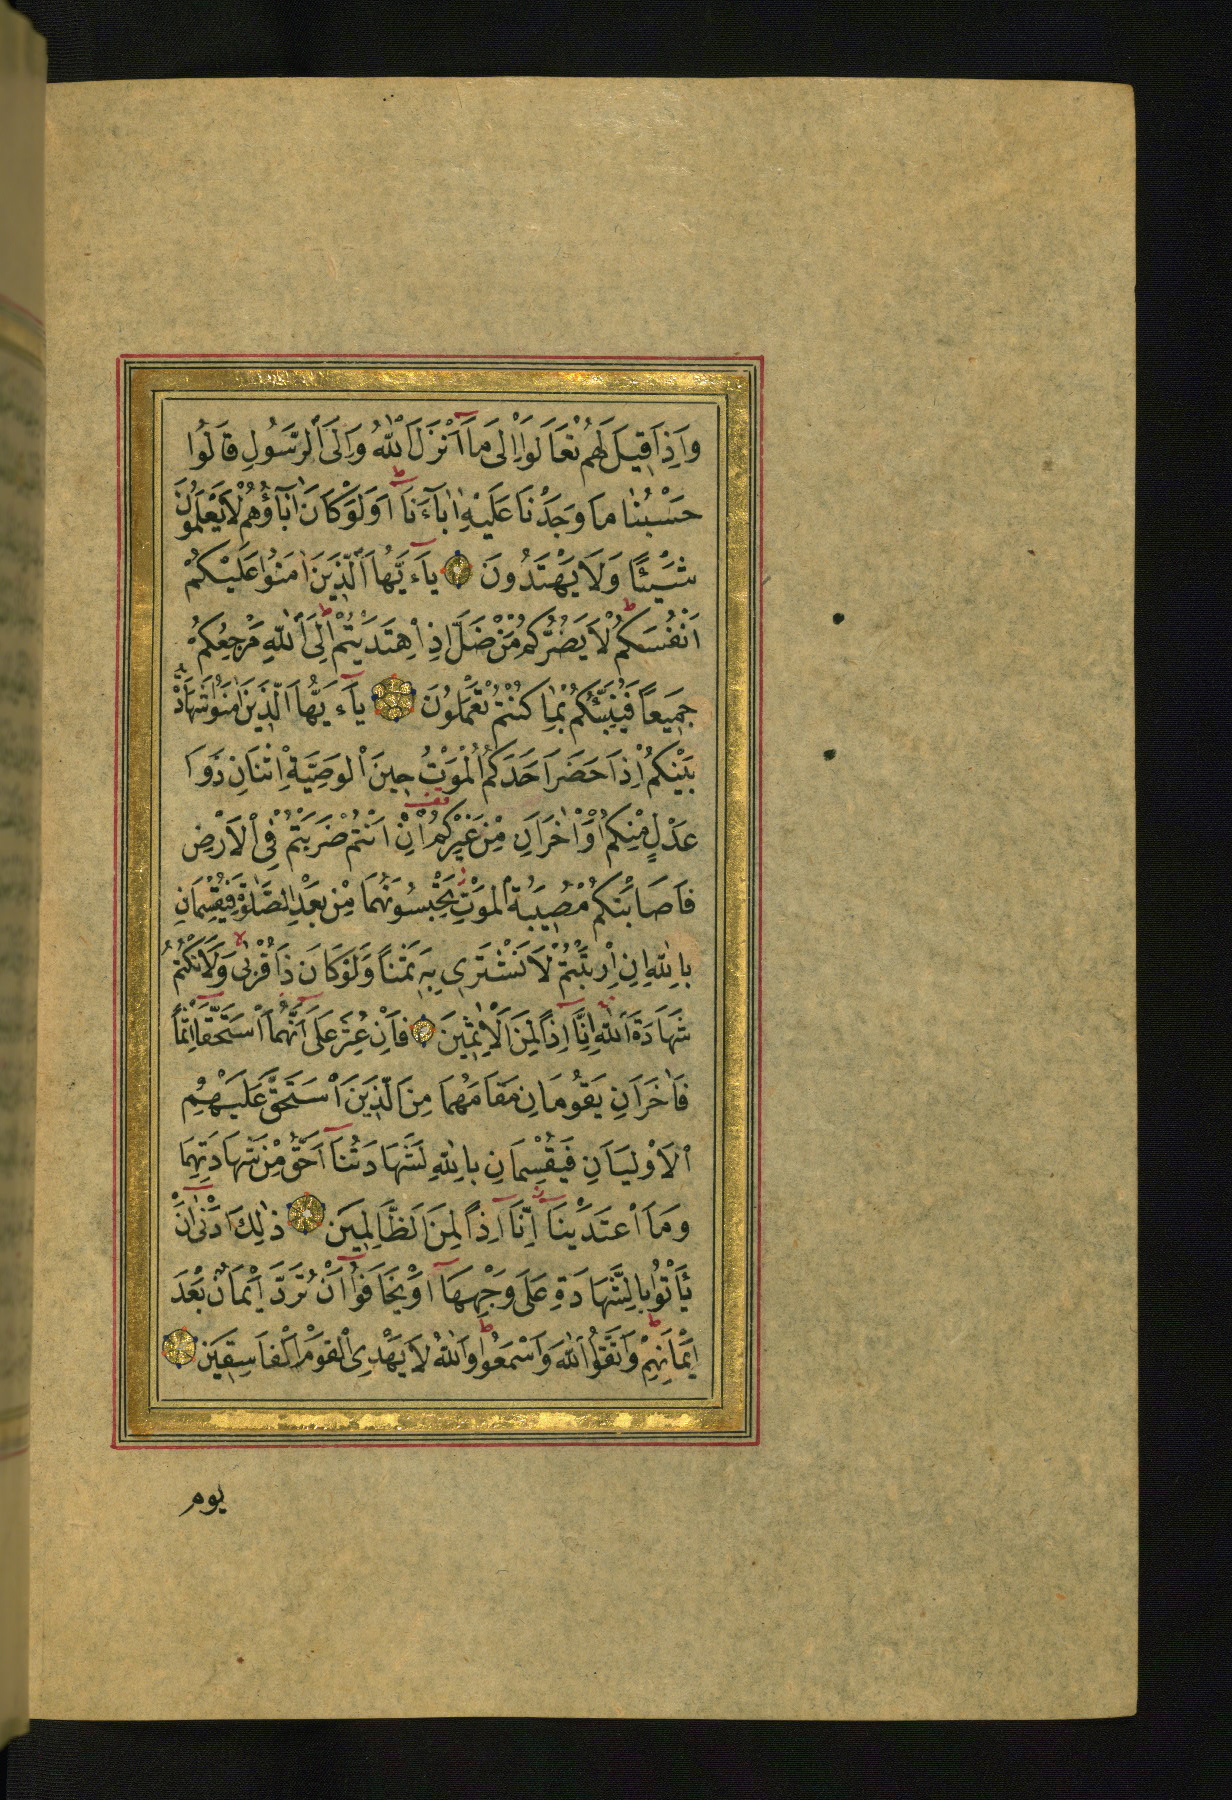 وَاِذَا قِيلَ لَهُمْ تَعَالَوْا اِلٰى مَآ اَنْزَلَ اللّٰهُ وَاِلَى الرَّسُولِ قَالُوا
حَسْبُنَا مَا وَجَدْنَا عَلَيْهِ اٰبَآءَنَا اَوَلَوْ كَانَ اٰبَآؤُهُمْ لَا يَعْلَمُونَ
شَيْئًا وَلَا يَهْتَدُونَ يَآءَيُّهَا الَّذِينَ اٰمَنُوا عَلَيْكُمْ
اَنْفُسَكُمْ لَا يَضُرُّكُمْ مَنْ ضَلَّ اِذَا اهْتَدَيْتُمْ اِلَى اللّٰهِ مَرْجِعُكُمْ
جَمِيعًا فَيُنَبِّئُكُمْ بِمَا كُنْتُمْ تَعْمَلُونَ يَآءَيُّهَا الَّذِينَ اٰمَنُوا شَهَادَةُ
بَيْنِكُمْ اِذَا حَضَرَ اَحَدَكُمُ الْمَوْتُ حِينَ الْوَصِيَّةِ اثْنَانِ ذَوَا
عَدْلٍ مِنْكُمْ اَوْ اٰخَرَانِ مِنْ غَيْرِكُمْ اِنْ اَنْتُمْ ضَرَبْتُمْ فِى الْاَرْضِ
فَاَصَابَتْكُمْ مُصِيبَةُ الْمَوْتِ تَحْبِسُونَهُمَا مِنْ بَعْدِ الصَّلٰوةِ فَيُقْسِمَانِ
بِاللّٰهِ اِنِ ارْتَبْتُمْ لَا نَشْتَرِى بِهِ ثَمَنًا وَلَوْ كَانَ ذَا قُرْبٰى وَلَا نَكْتُمُ
شَهَادَةَ اللّٰهِ اِنَّآ اِذًا لَمِنَ الْاٰثِمِينَ فَاِنْ عُثِرَ عَلٰٓى اَنَّهُمَا اسْتَحَقَّآ اِثْمًا
فَاٰخَرَانِ يَقُومَانِ مَقَامَهُمَا مِنَ الَّذِينَ اسْتَحَقَّ عَلَيْهِمُ
الْاَوْلَيَانِ فَيُقْسِمَانِ بِاللّٰهِ لَشَهَادَتُنَآ اَحَقُّ مِنْ شَهَادَتِهِمَا
وَمَا اعْتَدَيْنَآ اِنَّآ اِذًا لَمِنَ الظَّالِمِينَ ذٰلِكَ اَدْنٰٓى اَنْ
يَاْتُوا بِالشَّهَادَةِ عَلٰى وَجْهِهَآ اَوْ يَخَافُوٓا اَنْ تُرَدَّ اَيْمَانٌ بَعْدَ
اَيْمَانِهِمْ وَاتَّقُوا اللّٰهَ وَاسْمَعُوا وَاللّٰهُ لَا يَهْدِى الْقَوْمَ الْفَاسِقِينَ
يوم